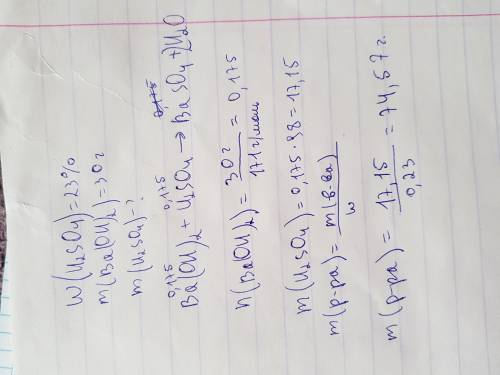 W(H₂SO₄)=23%
m(Ba(OH)₂)=30г
m(H₂SO₄)-?
0,175 0,175 0,175
Ba(OH)₂ + H₂SO₄ → BaSO₄ + 2H₂O
n(Ba(OH)₂) = 30г / 171г/моль = 0,175
m(H₂SO₄) = 0,175·98 = 17,15
m(р-ра) = m(в-ва) / w
m(р-ра) = 17,15 / 0,23 = 74,57г.